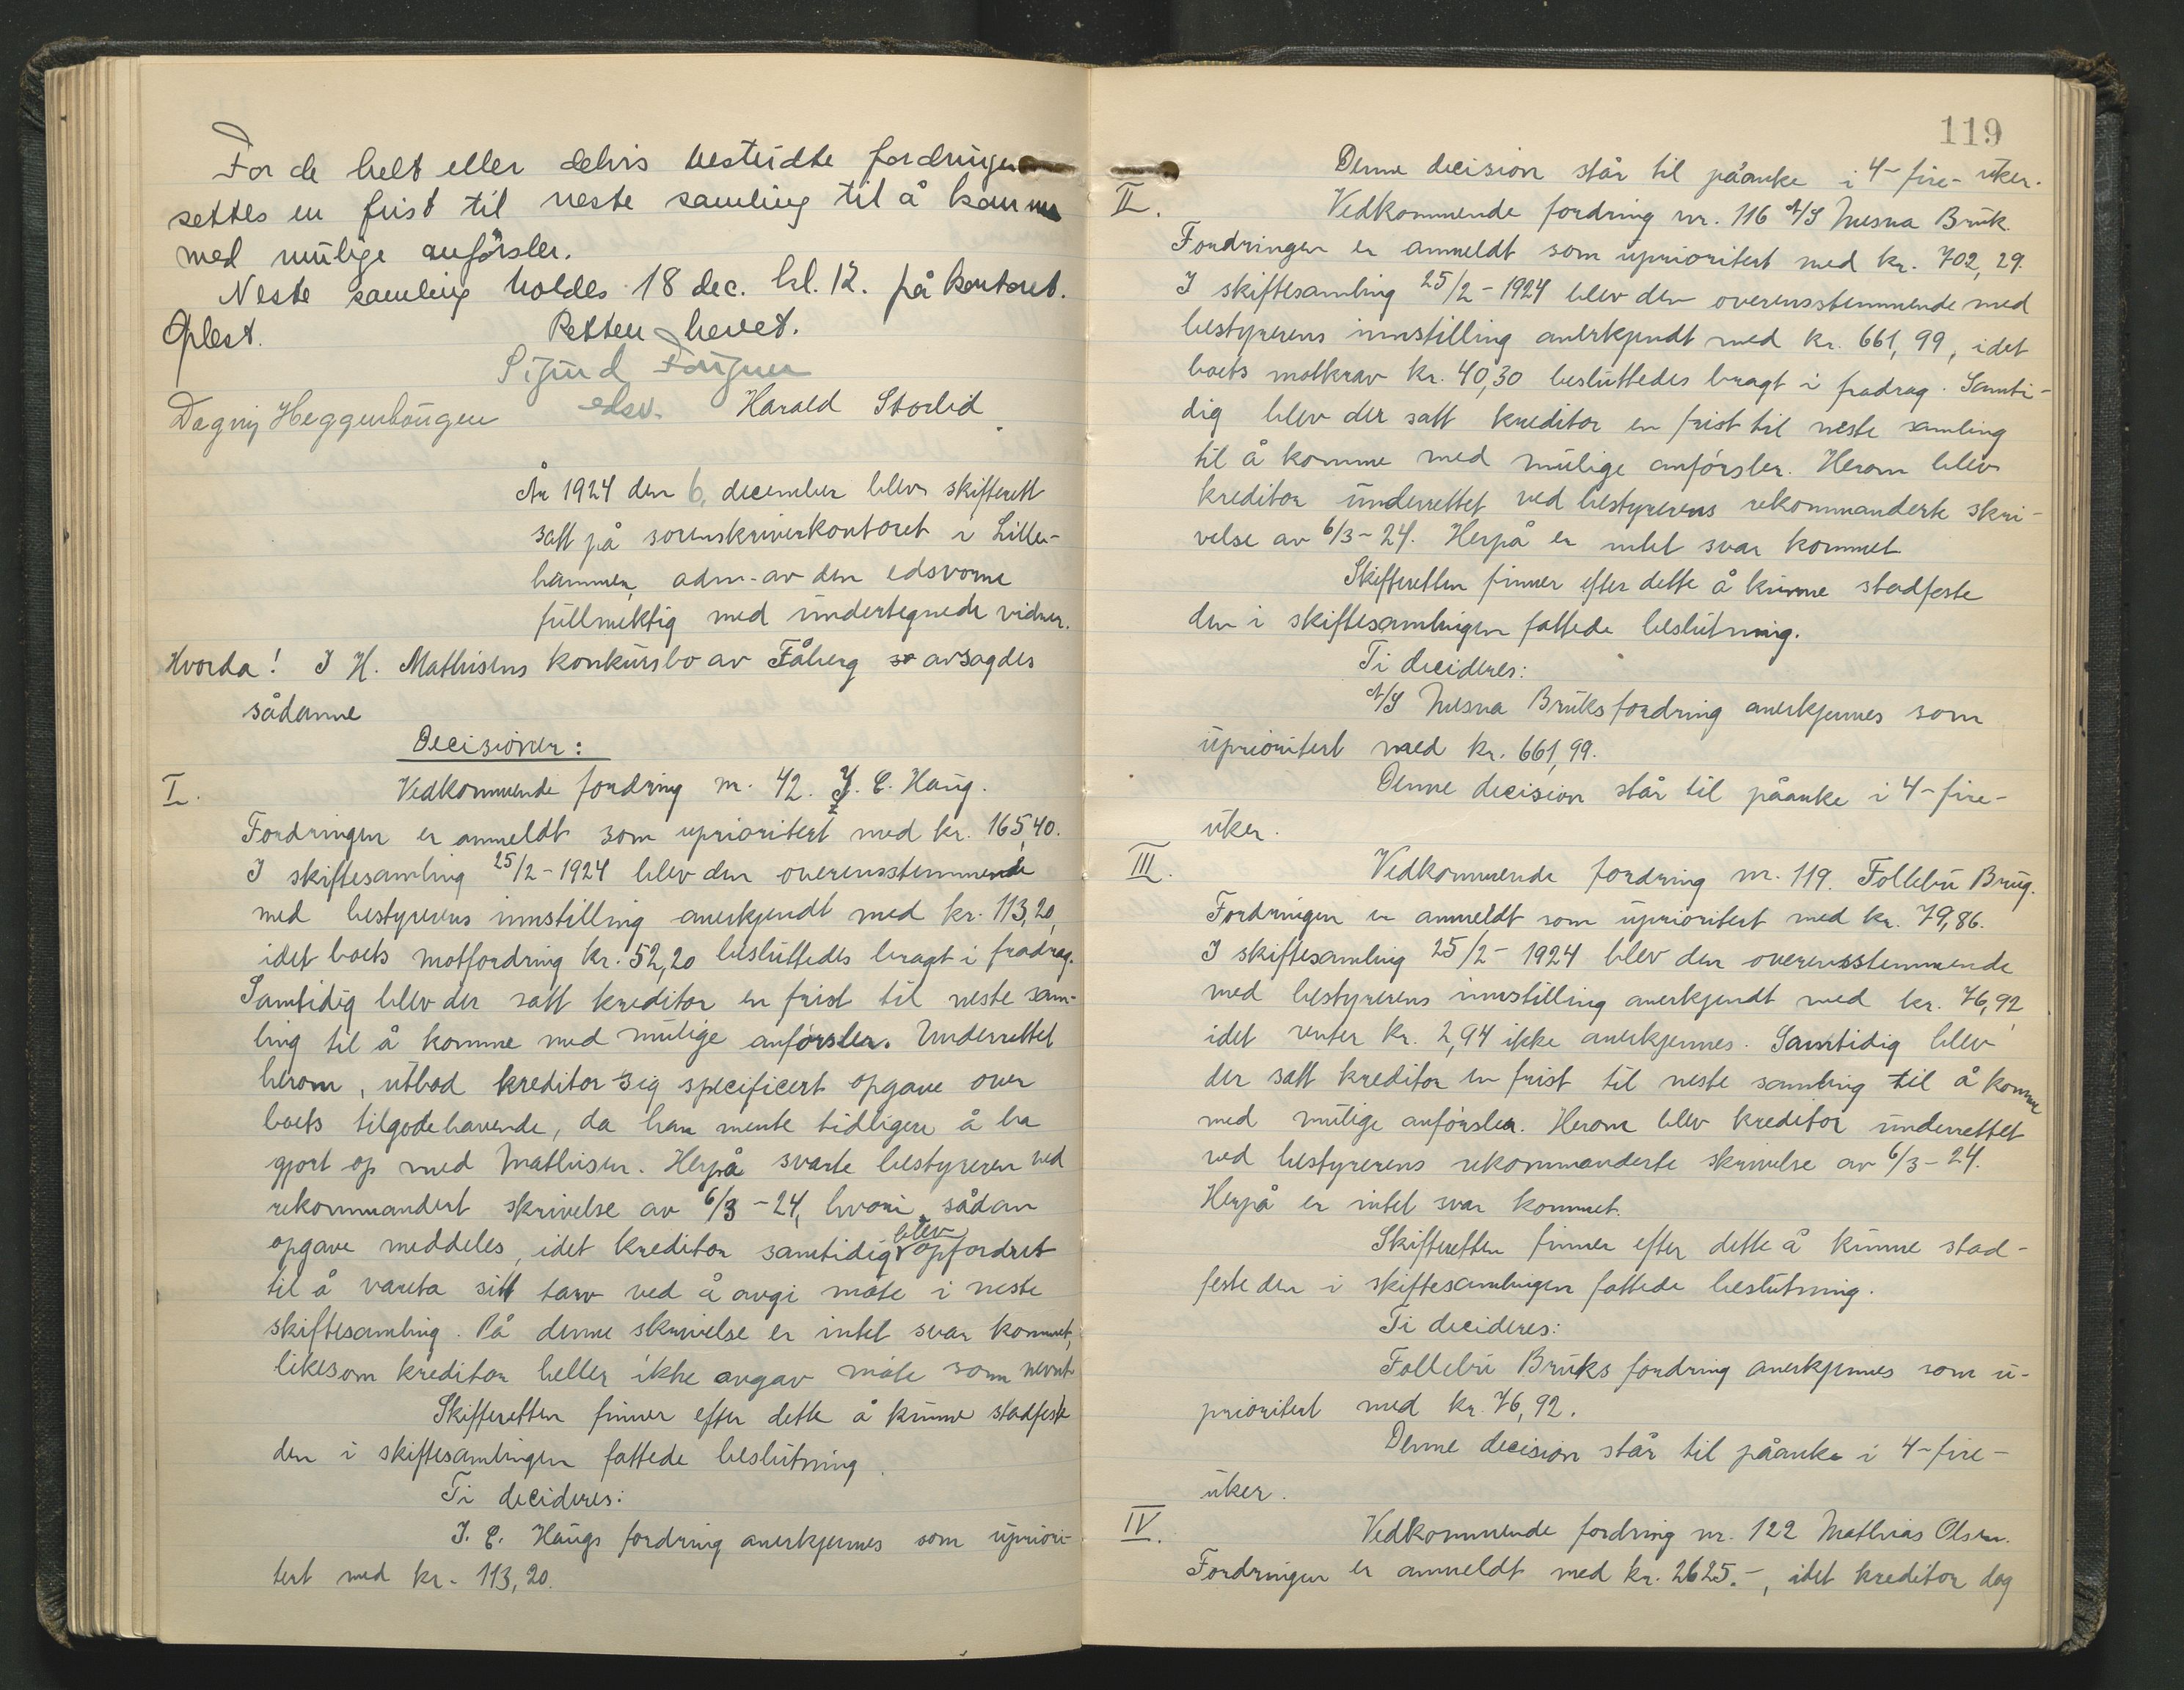 For de helt eller delvis bestridte fordringer
settes en frist til neste samling til å komme
med mulige anførsler.
Neste samling holdes 18 dec. kl. 12. på kontoret.
Oplest. Retten hevet.
Sigurd
edsv. Harald Storlid
Dagny Heggenhougen
År 1924 den 6. december blev skifterett
satt på sorenskriverkontoret i Lille-
hammer, adm. av den edsvorne
fullmektig med undertegnede vidner.
Hvorda! I H. Mathisens konkursbo av Fåberg avsagdes
sådanne
Decisioner:
I. Vedkommende fordring nr. 42. J. C. Haug.
Fordringen er anmeldt som uprioritert med kr. 165,40.
I skiftesamling 25/2-1924 blev den overensstemmende
med bestyrerens innstilling anerkjendt med kr. 113,20,
idet boets motfordring kr. 52,20 besluttedes bragt i fradrag.
Samtidig blev der satt kreditor en frist til neste sam-
ling til å komme med mulige anførsler. Underrettet
herom, utbad kreditor sig specificert opgave over
boets tilgodehavende, da han mente tidligere å ha
gjort op med Mathisen. Herpå svarte bestyreren ved
rekommandert skrivelse av 6/3-24, hvori sådan
opgave meddeles, idet kreditor samtidig blev opfordret
til å vareta sitt tarv ved å avgi møte i neste
skiftesamling. På denne skrivelse er intet svar kommet,
likesom kreditor heller ikke avgav møte som nevnt
Skifteretten finner efter dette å kunne stadfeste
den i skiftesamlingen fattede beslutning.
Ti decideres:
J. C. Haugs fordring anerkjennes som upriori-
tert med kr. 113,20.
119
Denne decision står til påanke i 4-fire- uker.
II. Vedkommende fordring nr. 116 A/S Mesna Bruk.
Fordringen er anmeldt som uprioritert med kr. 702,29.
I skiftesamling 25/2-1924 blev den overensstemmende med
bestyrerens innstilling anerkjendt med kr. 661,99, idet
boets motkrav kr. 40,30 besluttedes bragt i fradrag. Samti-
dig blev der satt kreditor en frist til neste samling
til å komme med mulige anførsler. Herom blev
kreditor underrettet ved bestyrerens rekommanderte skri-
velse av 6/3-24. Herpå er intet svar kommet
Skifteretten finner efter dette å kunne stadfeste
den i skiftesamlingen fattede beslutning.
Ti decideres:
A/S Mesna Bruks fordring anerkjennes som
uprioritert med kr. 661,99.
Denne decision står til påanke i 4-fire-
uker.
III. Vedkommende fordring nr. 119. Follebu Brug.
Fordringen er anmeldt som uprioritert med kr. 79,86.
I skiftesamling 25/2-1924 blev den overensstemmende
med bestyrerens innstilling anerkjendt med kr. 76,92,
idet renter kr. 2,94 ikke anerkjennes. Samtidig blev
der satt kreditor en frist til neste samling til å komme
med mulige anførsler. Herom blev kreditor underrettet
ved bestyrerens rekommanderte skrivelse av 6/3-24.
Herpå er intet svar kommet.
Skifteretten finner efter dette å kunne stad-
feste den i skiftesamlingen fattede beslutning.
Ti decideres:
Follebu Bruks fordring anerkjennes som u-
prioritert med kr. 76,92.
Denne decision står til påanke i 4-fire-
uker.
IV. Vedkommende fordring nr. 122 Mathias Olsen.
Fordringen er anmeldt med kr. 2625.-, idet kreditor dog